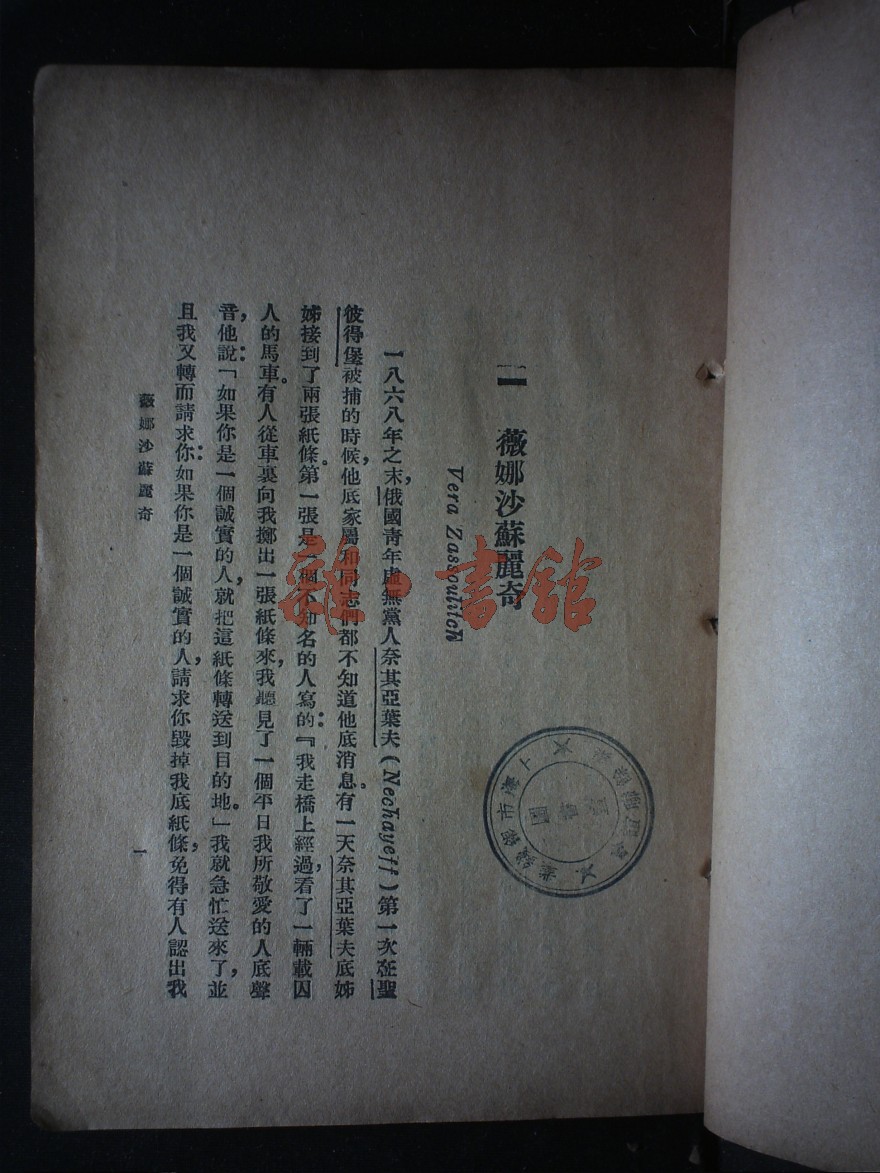 一 薇娜沙蘇麗奇
Vera Zassoulitch
一八六八年之末，俄國青年虛無黨人奈其亞葉夫（Nechayeff）第一次在聖
彼得堡被捕的時候，他底家屬和同志們都不知道他底消息。有一天奈其亞葉夫底姊
姊接到了兩張紙條。第一張是一個不知名的人寫的：『我走橋上經過，看了一輛載囚
人的馬車。有人從車裏向我擲出一張紙條來，我聽見了一個平日我所敬愛的人底聲
音，他說：「如果你是一個誠實的人，就把這紙條轉送到目的地。」我就急忙送來了，並
且我又轉而請求你：如果你是一個誠實的人，請求你毀掉我底紙條，免得有人認出我
薇娜沙蘇麗奇
一
雜·書館